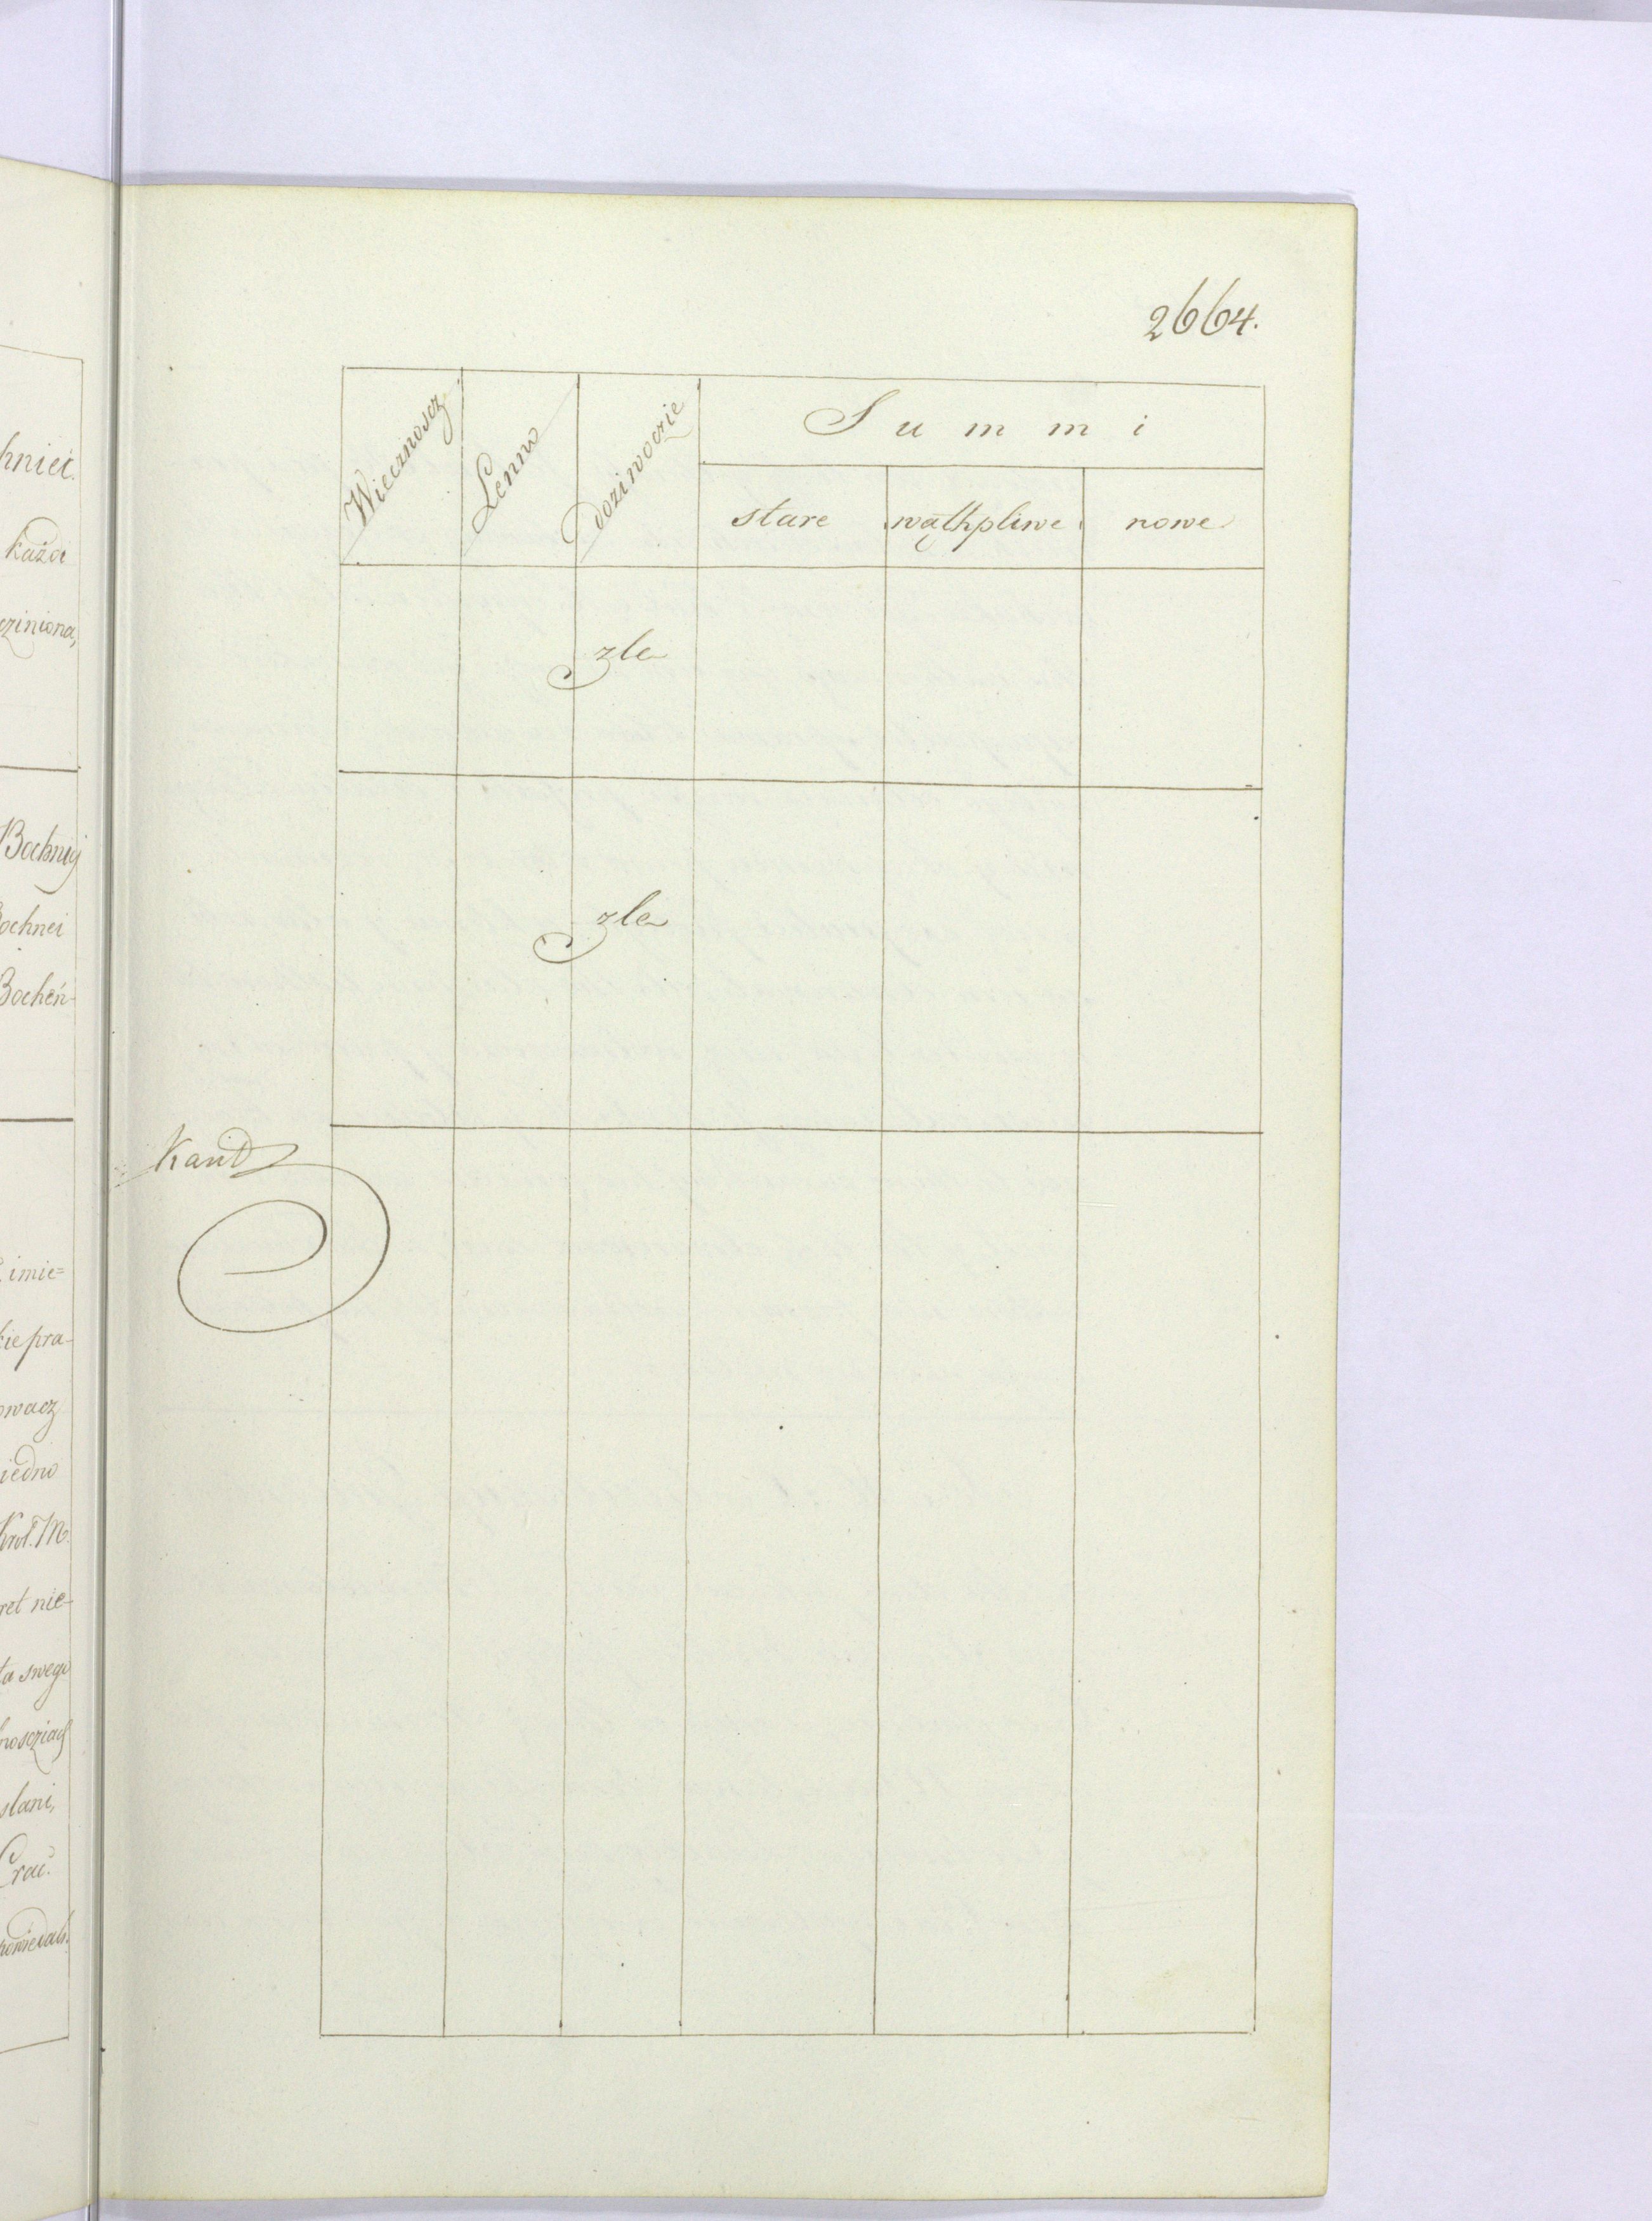 hniei.
każdi
cziniona,
Bochnij
Bochnei
Bocheń-
imie=
kie pra-
owacz
iedno
Krol. M.
ret nie-
ta swego
noscziach
slani,
Crac.
powiedali.
2664.
Wiecznoscz
Lenno
Doziwoczie
Summi
stare
wąthpliwe
nowe
zle
zle